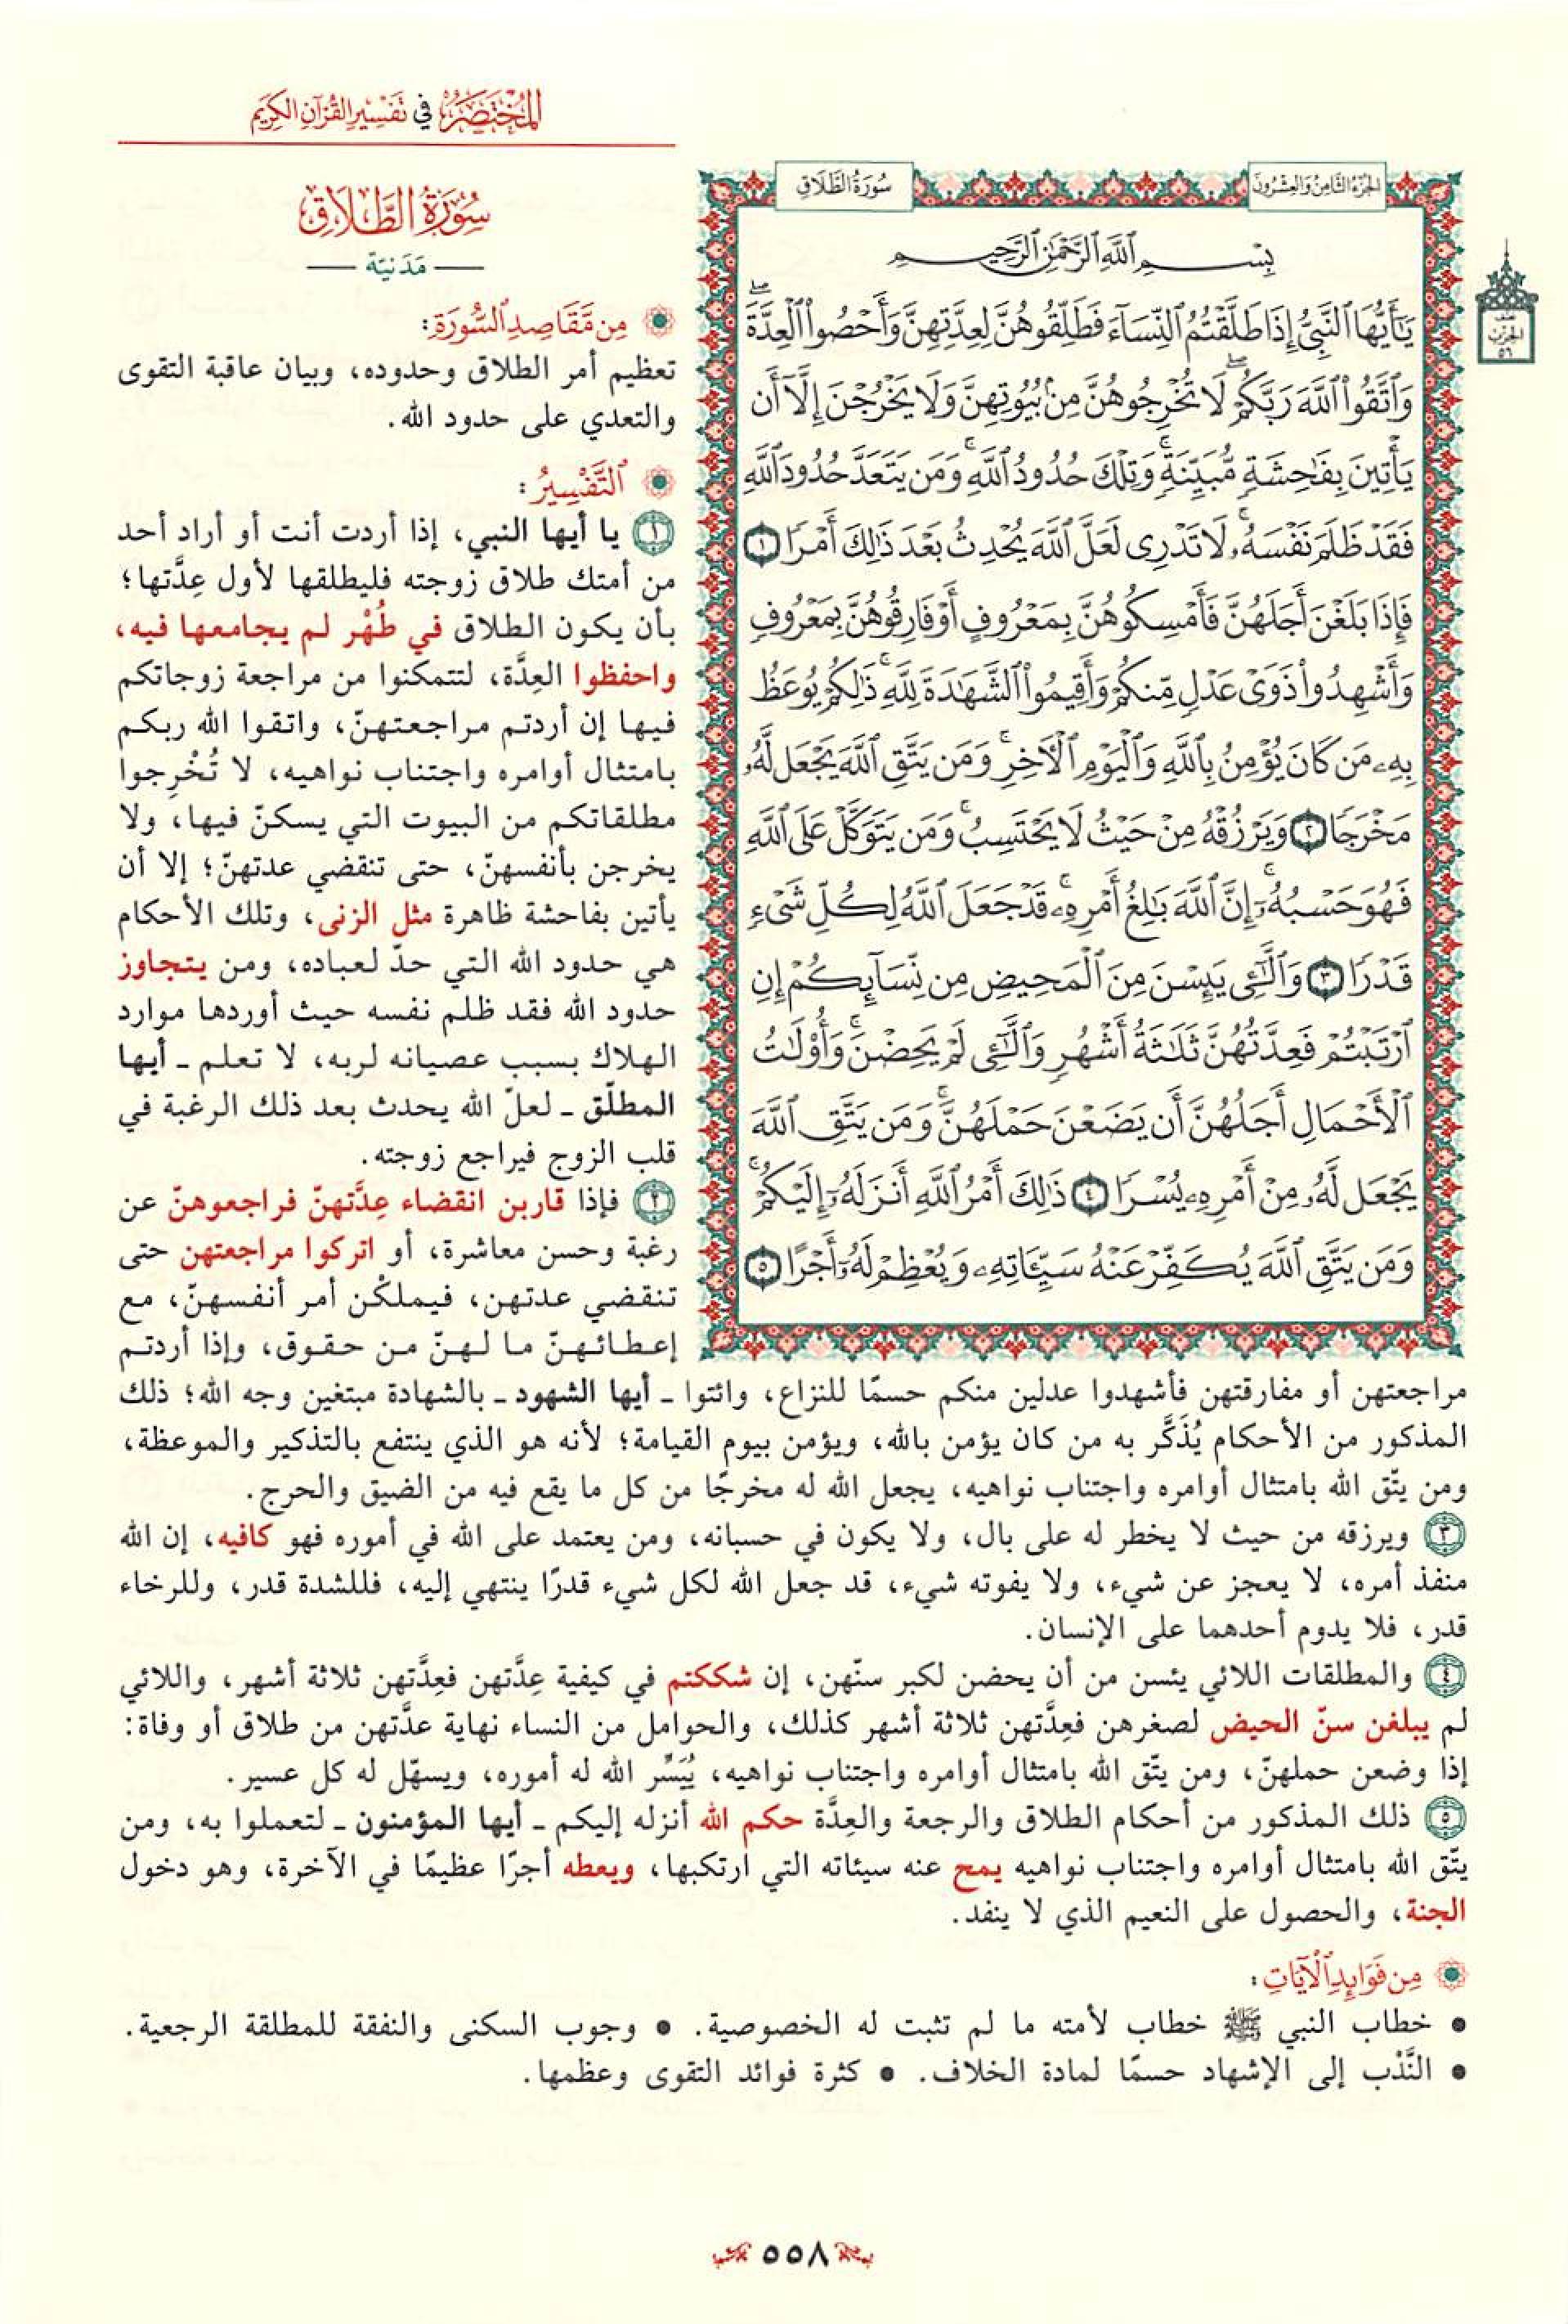 المختصر في تفسير القرآن الكريم
الجزء الثامن والعشرون
سورة الطلاق
بِسْمِ ٱللَّهِ ٱلرَّحْمَٰنِ ٱلرَّحِيمِ
يَٰٓأَيُّهَا ٱلنَّبِيُّ إِذَا طَلَّقْتُمُ ٱلنِّسَآءَ فَطَلِّقُوهُنَّ لِعِدَّتِهِنَّ وَأَحْصُوا۟ ٱلْعِدَّةَۖ
وَٱتَّقُوا۟ ٱللَّهَ رَبَّكُمْۖ لَا تُخْرِجُوهُنَّ مِنۢ بُيُوتِهِنَّ وَلَا يَخْرُجْنَ إِلَّآ أَن
يَأْتِينَ بِفَٰحِشَةٍ مُّبَيِّنَةٍۚ وَتِلْكَ حُدُودُ ٱللَّهِۚ وَمَن يَتَعَدَّ حُدُودَ ٱللَّهِ
فَقَدْ ظَلَمَ نَفْسَهُۥۚ لَا تَدْرِى لَعَلَّ ٱللَّهَ يُحْدِثُ بَعْدَ ذَٰلِكَ أَمْرًا ١
فَإِذَا بَلَغْنَ أَجَلَهُنَّ فَأَمْسِكُوهُنَّ بِمَعْرُوفٍ أَوْ فَارِقُوهُنَّ بِمَعْرُوفٍ
وَأَشْهِدُوا۟ ذَوَىْ عَدْلٍ مِّنكُمْ وَأَقِيمُوا۟ ٱلشَّهَٰدَةَ لِلَّهِۚ ذَٰلِكُمْ يُوعَظُ
بِهِۦ مَن كَانَ يُؤْمِنُ بِٱللَّهِ وَٱلْيَوْمِ ٱلْأَخِرِۚ وَمَن يَتَّقِ ٱللَّهَ يَجْعَل لَّهُۥ
مَخْرَجًا ٢ وَيَرْزُقْهُ مِنْ حَيْثُ لَا يَحْتَسِبُۚ وَمَن يَتَوَكَّلْ عَلَى ٱللَّهِ
فَهُوَ حَسْبُهُۥٓۚ إِنَّ ٱللَّهَ بَٰلِغُ أَمْرِهِۦۚ قَدْ جَعَلَ ٱللَّهُ لِكُلِّ شَىْءٍ
قَدْرًا ٣ وَٱلَّٰٓـِٔى يَئِسْنَ مِنَ ٱلْمَحِيضِ مِن نِّسَآئِكُمْ إِنِ
ٱرْتَبْتُمْ فَعِدَّتُهُنَّ ثَلَٰثَةُ أَشْهُرٍ وَٱلَّٰٓـِٔى لَمْ يَحِضْنَۚ وَأُو۟لَٰتُ
ٱلْأَحْمَالِ أَجَلُهُنَّ أَن يَضَعْنَ حَمْلَهُنَّۚ وَمَن يَتَّقِ ٱللَّهَ
يَجْعَل لَّهُۥ مِنْ أَمْرِهِۦ يُسْرًا ٤ ذَٰلِكَ أَمْرُ ٱللَّهِ أَنزَلَهُۥٓ إِلَيْكُمْۚ
وَمَن يَتَّقِ ٱللَّهَ يُكَفِّرْ عَنْهُ سَيِّـَٔاتِهِۦ وَيُعْظِمْ لَهُۥٓ أَجْرًا ٥
نصف
الحزب
٥٦
سورة الطلاق
مدنية
من مقاصد السورة:
تعظيم أمر الطلاق وحدوده، وبيان عاقبة التقوى
والتعدي على حدود الله.
التفسير:
١ يا أيها النبي، إذا أردت أنت أو أراد أحد
من أمتك طلاق زوجته فليطلقها لأول عِدَّتها؛
بأن يكون الطلاق في طُهْر لم يجامعها فيه،
واحفظوا العِدَّة، لتتمكنوا من مراجعة زوجاتكم
فيها إن أردتم مراجعتهنّ، واتقوا الله ربكم
بامتثال أوامره واجتناب نواهيه، لا تُخْرِجوا
مطلقاتكم من البيوت التي يسكنّ فيها، ولا
يخرجن بأنفسهنّ، حتى تنقضي عدتهنّ؛ إلا أن
يأتين بفاحشة ظاهرة مثل الزنى، وتلك الأحكام
هي حدود الله التي حدّ لعباده، ومن يتجاوز
حدود الله فقد ظلم نفسه حيث أوردها موارد
الهلاك بسبب عصيانه لربه، لا تعلم ـ أيها
المطلّق ـ لعلّ الله يحدث بعد ذلك الرغبة في
قلب الزوج فيراجع زوجته.
٢ فإذا قاربن انقضاء عِدَّتهنّ فراجعوهنّ عن
رغبة وحسن معاشرة، أو اتركوا مراجعتهن حتى
تنقضي عدتهن، فيملكْن أمر أنفسهنّ، مع
إعطائهنّ ما لهنّ من حقوق، وإذا أردتم
مراجعتهن أو مفارقتهن فأشهدوا عدلين منكم حسمًا للنزاع، وائتوا ـ أيها الشهود ـ بالشهادة مبتغين وجه الله؛ ذلك
المذكور من الأحكام يُذَكَّر به من كان يؤمن بالله، ويؤمن بيوم القيامة؛ لأنه هو الذي ينتفع بالتذكير والموعظة،
ومن يتّق الله بامتثال أوامره واجتناب نواهيه، يجعل الله له مخرجًا من كل ما يقع فيه من الضيق والحرج.
٣ ويرزقه من حيث لا يخطر له على بال، ولا يكون في حسبانه، ومن يعتمد على الله في أموره فهو كافيه، إن الله
منفذ أمره، لا يعجز عن شيء، ولا يفوته شيء، قد جعل الله لكل شيء قدرًا ينتهي إليه، فللشدة قدر، وللرخاء
قدر، فلا يدوم أحدهما على الإنسان.
٤ والمطلقات اللائي يئسن من أن يحضن لكبر سنّهن، إن شككتم في كيفية عِدَّتهن فعِدَّتهن ثلاثة أشهر، واللائي
لم يبلغن سنّ الحيض لصغرهن فعِدَّتهن ثلاثة أشهر كذلك، والحوامل من النساء نهاية عدَّتهن من طلاق أو وفاة:
إذا وضعن حملهنّ، ومن يتّق الله بامتثال أوامره واجتناب نواهيه، يُيَسِّر الله له أموره، ويسهّل له كل عسير.
٥ ذلك المذكور من أحكام الطلاق والرجعة والعِدَّة حكم الله أنزله إليكم ـ أيها المؤمنون ـ لتعملوا به، ومن
يتّق الله بامتثال أوامره واجتناب نواهيه يمح عنه سيئاته التي ارتكبها، ويعطه أجرًا عظيمًا في الآخرة، وهو دخول
الجنة، والحصول على النعيم الذي لا ينفد.
من فوائد الآيات:
• خطاب النبي ﷺ خطاب لأمته ما لم تثبت له الخصوصية. • وجوب السكنى والنفقة للمطلقة الرجعية.
• النَّدْب إلى الإشهاد حسمًا لمادة الخلاف. • كثرة فوائد التقوى وعظمها.
٥٥٨